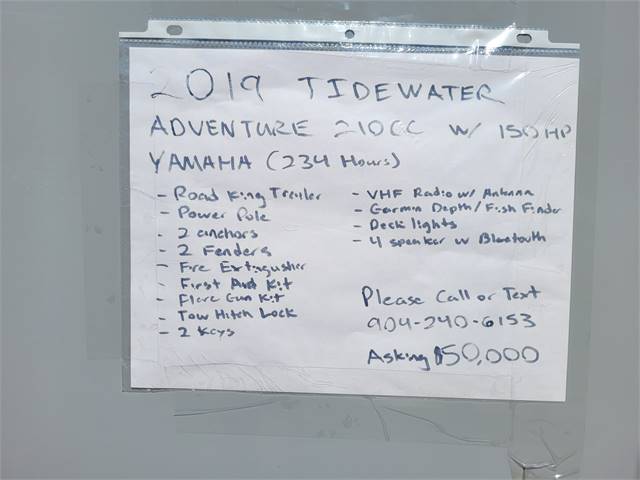 2019 TIDEWATER
ADVENTURE 210CC W/ 150 HP
YAMAHA (234 Hours)
- Road King Trailer
- Power Pole
- 2 anchors
- 2 Fenders
- Fire Extingusher
- First Aid Kit
- Flare Gun Kit
- Tow Hitch Lock
- 2 Keys
- VHF Radio w/ Antenna
- Garmin Depth/Fish Finder
- Deck lights
- 4 speaker w Bluetouth
Please Call or Text
904-240-6153
Asking $50,000